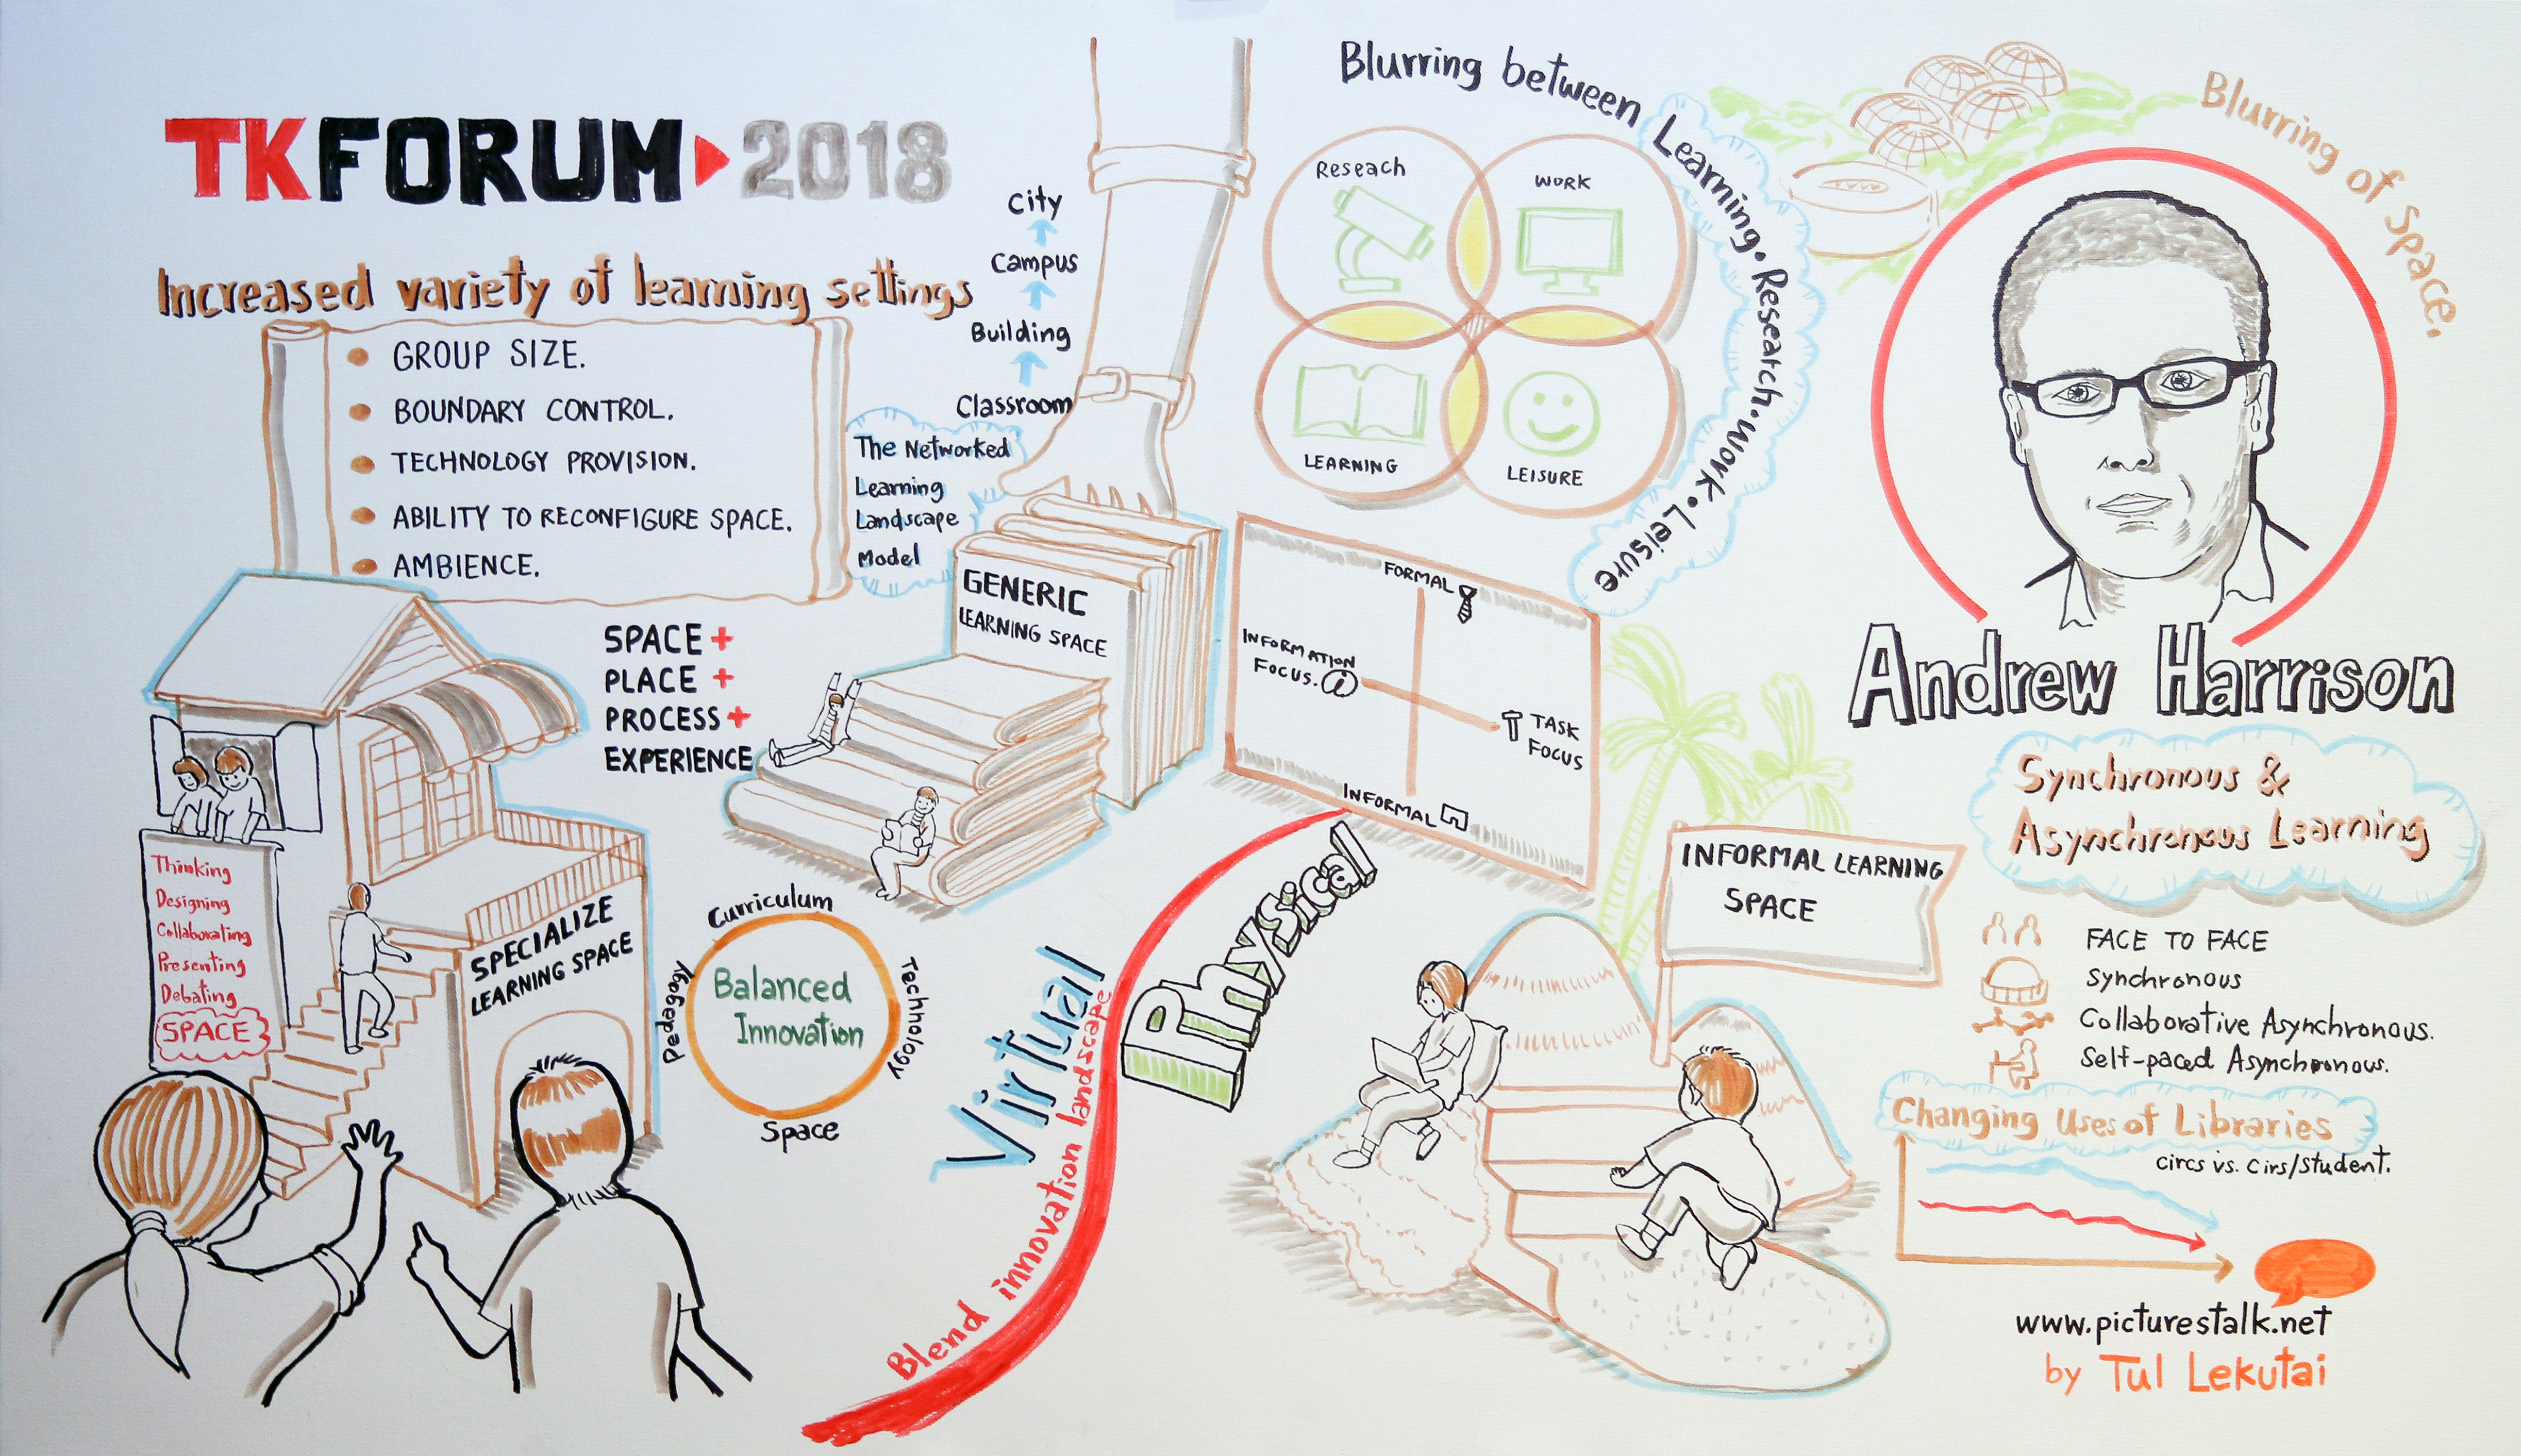 TKFORUM 2018
Increased variety of learning settings
GROUP SIZE.
BOUNDARY CONTROL.
TECHNOLOGY PROVISION.
ABILITY TO RECONFIGURE SPACE.
AMBIENCE.
City
Campus
Building
Classroom
The Networked
Learning
Landscape
Model
GENERIC
LEARNING SPACE
SPACE +
PLACE +
PROCESS +
EXPERIENCE
Thinking
Designing
Collaborating
Presenting
Debating
SPACE
SPECIALIZE
LEARNING SPACE
Curriculum
Pedagogy
Technology
Space
Balanced
Innovation
Virtual
Physical
Blend innovation landscape
Blurring between Learning. Research. Work. Leisure
Reseach
WORK
LEARNING
LEISURE
FORMAL
INFORMATION
FOCUS. i
TASK
FOCUS
INFORMAL
INFORMAL LEARNING
SPACE
Blurring of Space.
Andrew Harrison
Synchronous &
Asynchronous Learning
FACE TO FACE
Synchronous
Collaborative Asynchronous.
Self-paced Asynchronous.
Changing Uses of Libraries
circs vs. Cirs/student.
www.picturestalk.net
by Tul Lekutai